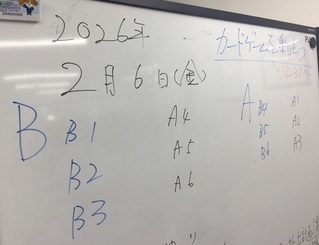 2026年
2月6日(金)
カードゲームを楽しもう
B
B1
B2
B3
A4
A5
A6
A
B4
B5
B6
A1
A2
A3